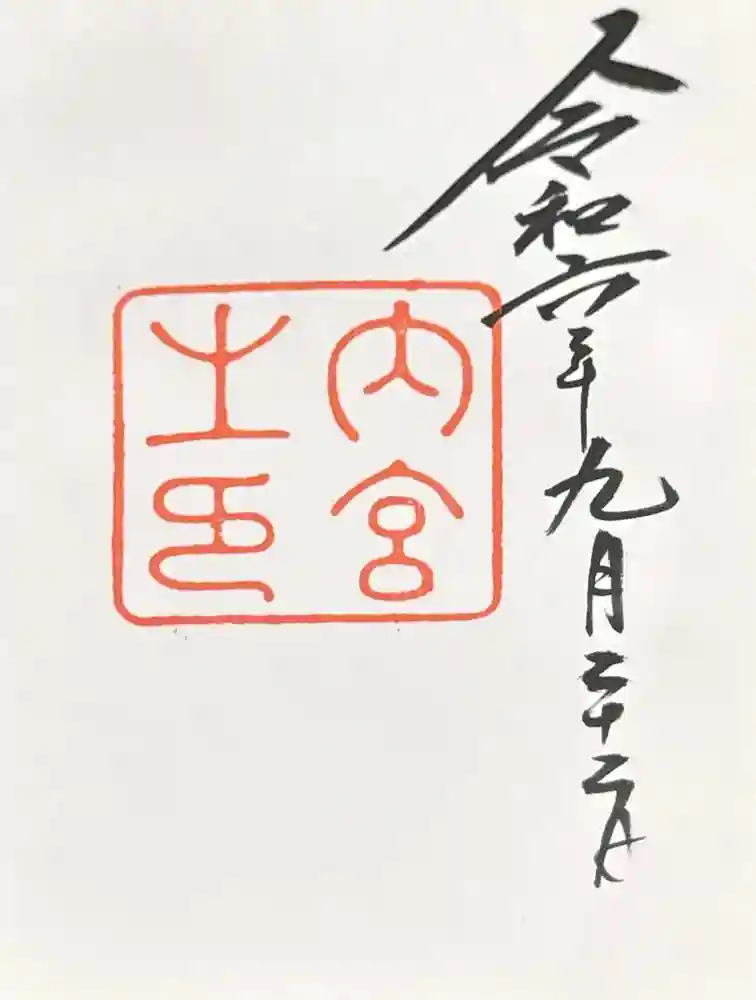 令和六年九月二十二日
内宮
之印